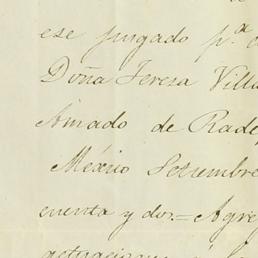 ese jusgado p.ª
Doña Teresa Villa
Amado de Rade
México Setiembre
cuenta y dos.= Agre
actuaciones